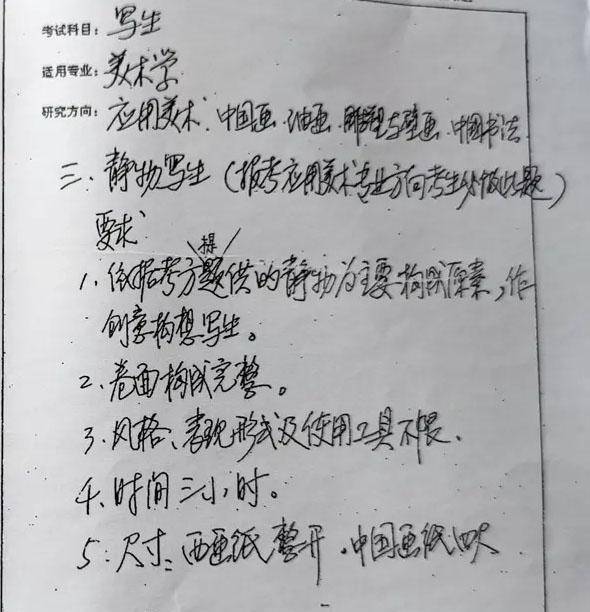 考试科目：写生
适用专业：美术学
研究方向：应用美术、中国画、油画、雕塑与壁画、中国书法
三、静物写生（报考应用美术专业方向考生必做此题）
要求：
提
1、依据考方题供的静物为主要构成原素，作
创意构想写生。
2、卷面构成完整。
3、风格、表现形式及使用工具不限、
4、时间三小时。
5、尺寸：西画纸整开、中国画纸四尺